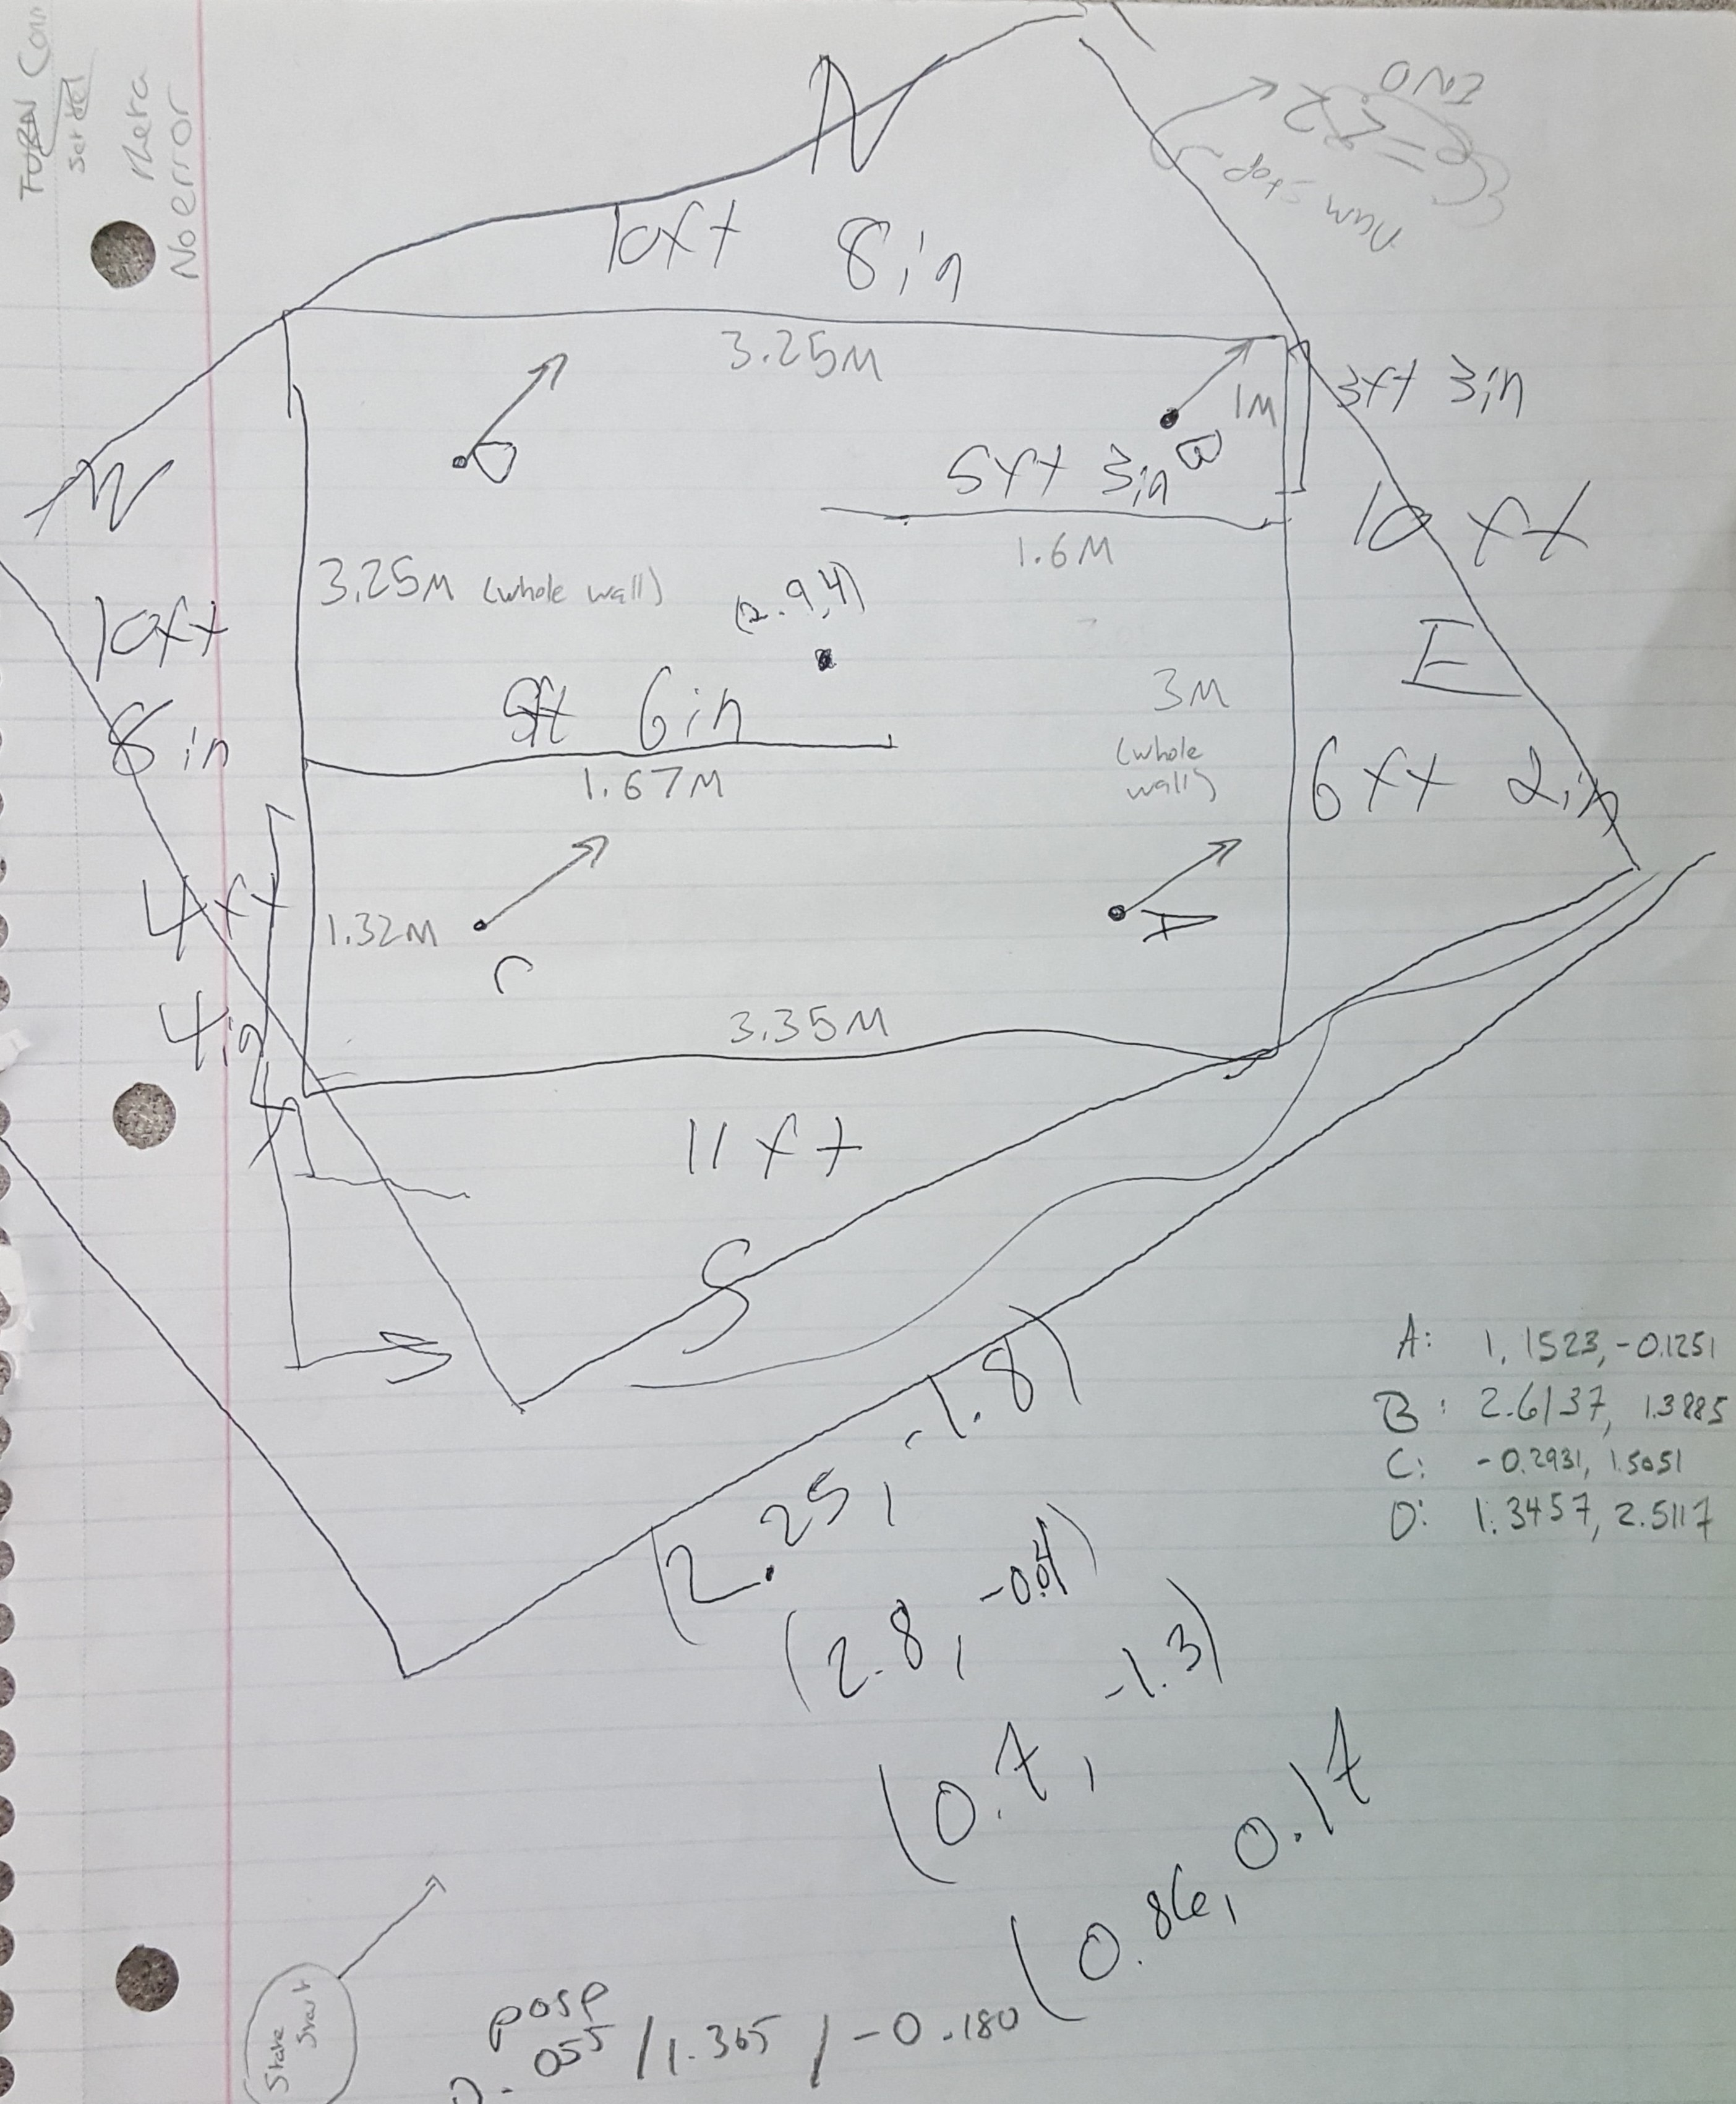 TURN Con
set
theta
No error
END
= i2
num stop
N
10ft 8in
3.25M
1M
3ft 3in
D
B
5ft 3in
1.6M
10ft
N
3.25M (whole wall)
(2.9,4)
10ft
8in
E
5ft 6in
1.67M
3M
(whole
wall)
6ft 2in
4ft
4in
1.32M
C
A
3.35M
11ft
S
A: 1.1523, -0.1251
B: 2.6137, 1.3885
C: -0.2931, 1.5051
D: 1.3457, 2.5117
(2.25, -1.8)
(2.8, -0.4)
(0.7, -1.3)
(0.86, 0.17
State
Start
pose
0.055 / 1.365 / -0.180